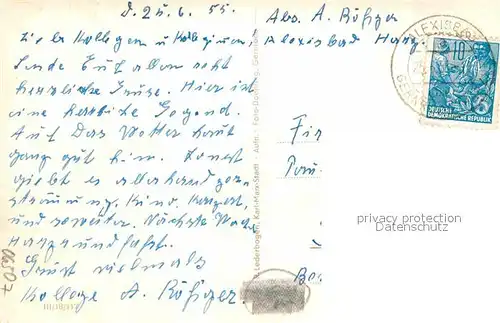 D. 25.6.55.
Liebe Kollegen u Kolleginnen,
Sende Euch allen recht
herzliche Grüße. Hier ist
eine herrliche Gegend.
Auf das Wetter haut
ganz gut hin. Sonst
giebt es allerhand Zer-
streuung, Kino, Konzert,
und so weiter. Nächste Woche
Harzrundfahrt.
Grüßt vielmals
Kollege A. Rößger.
Abs. A. Rößger
Alexisbad Harz.
ALEXISBAD
10
5
DEUTSCHE
DEMOKRATISCHE REPUBLIK
Fir
Lederbogen, Karl-Marx-Stadt
privacy protection
Datenschutz